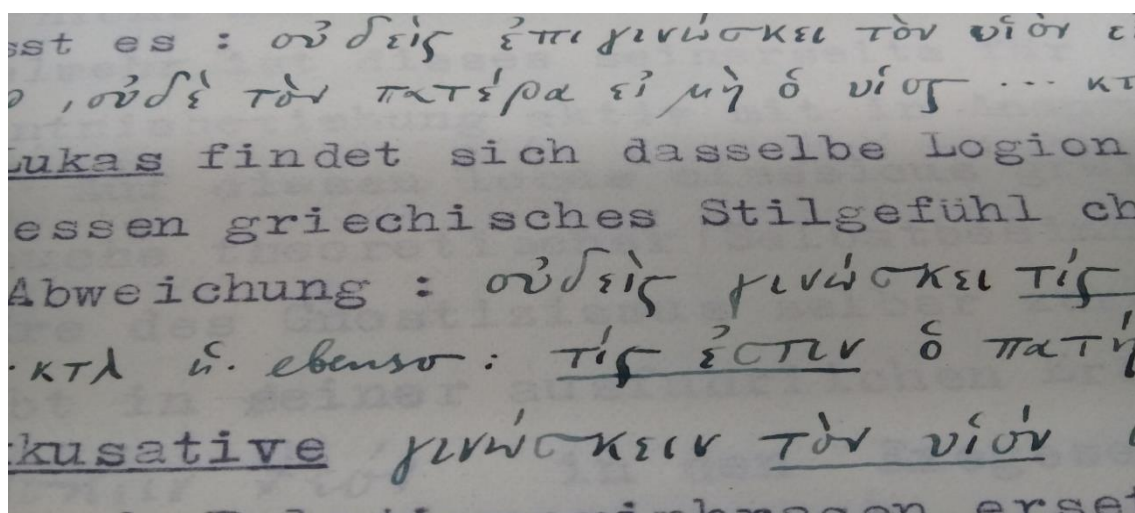 sst es : οὐδεὶς ἐπιγινώσκει τὸν υἱὸν ε
, οὐδὲ τὸν πατέρα εἰ μὴ ὁ υἱος ... κτ
Lukas findet sich dasselbe Logion
essen griechisches Stilgefühl ch
Abweichung : οὐδεὶς γινώσκει τίς
. κτλ ü. ebenso : τίς ἐστιν ὁ πατή
kusative γινώσκειν τὸν υἱόν